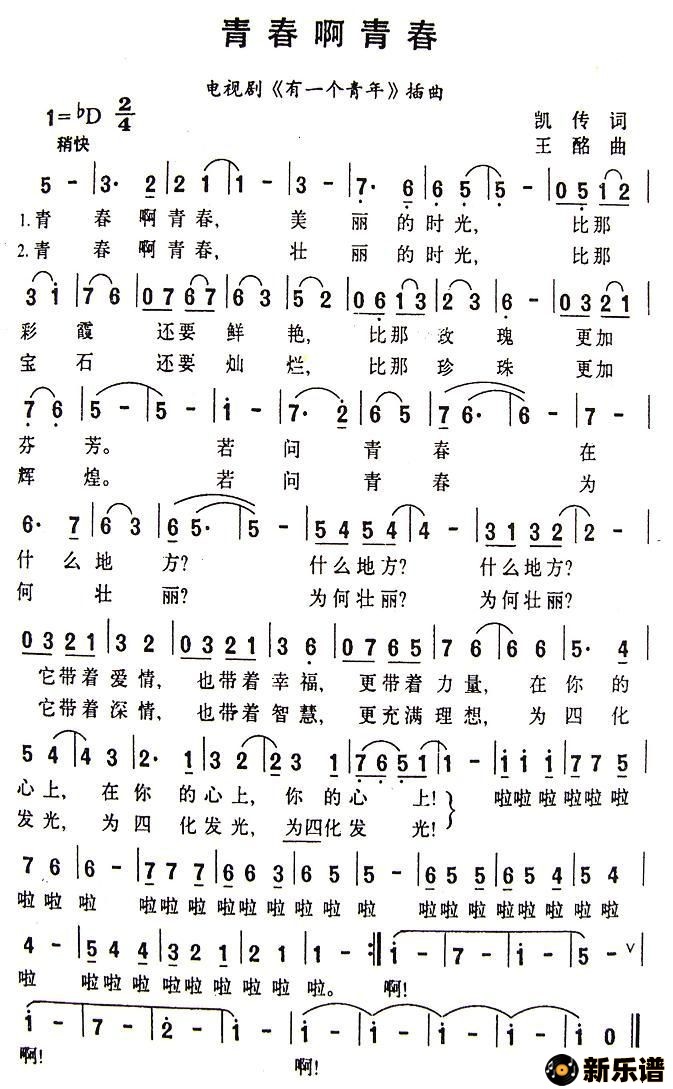 青春啊青春
电视剧《有一个青年》插曲
1=♭D 2/4
凯传词
稍快
王酩曲
5 - | 3· 2 | 2 2 1 | 1 - | 3 - | 7· 6 | 6 5 | 5 - | 0 5 1 2 |
1.青 春 啊 青 春, 美 丽 的 时 光, 比 那
2.青 春 啊 青 春, 壮 丽 的 时 光, 比 那
3 i | 7 6 | 0 7 6 7 | 6 3 | 5 2 | 0 6 1 3 | 2 3 | 6 - | 0 3 2 1 |
彩 霞 还要 鲜 艳, 比那 玫 瑰 更加
宝 石 还要 灿 烂, 比那 珍 珠 更加
7 6 | 5 - | 5 - | i - | 7· 2 | 6 5 | 7 6· | 6 - | 7 - |
芬 芳。 若 问 青 春 在
辉 煌。 若 问 青 春 为
6· 7 | 6 3 | 6 5· | 5 - | 5 4 5 4 | 4 - | 3 1 3 2 | 2 - |
什 么 地 方? 什么地方? 什么地方?
何 壮 丽? 为何壮丽? 为何壮丽?
0 3 2 1 | 3 2 | 0 3 2 1 | 3 6 | 0 7 6 5 | 7 6 | 6 6 | 5· 4 |
它带着 爱 情, 也带着 幸 福, 更带着 力 量, 在 你 的
它带着 深 情, 也带着 智 慧, 更充满 理 想, 为 四 化
5 4 | 4 3 | 2· 1 | 3 2 | 2 3 | 1 7 6 5 1 | 1 - | i i i | 7 7 5 |
心上, 在 你 的 心上, 你 的 心 上! 啦啦 啦 啦啦 啦
发光, 为 四 化 发光, 为四化 发 光!
7 6 | 6 - | 7 7 7 | 6 6 3 | 6 5 | 5 - | 6 5 5 | 6 5 4 | 5 4 |
啦 啦 啦 啦啦 啦 啦啦 啦 啦 啦 啦 啦啦 啦 啦啦 啦 啦 啦
4 - | 5 4 4 | 3 2 1 | 2 1 | 1 - :‖ i - | 7 - | i - | 5 - ∨ |
啦 啦啦 啦 啦啦 啦 啦 啦 啦。 啊!
i - | 7 - | 2 - | i - | i - | i - | i - | i 0 ‖
啊! 啊!
新乐谱